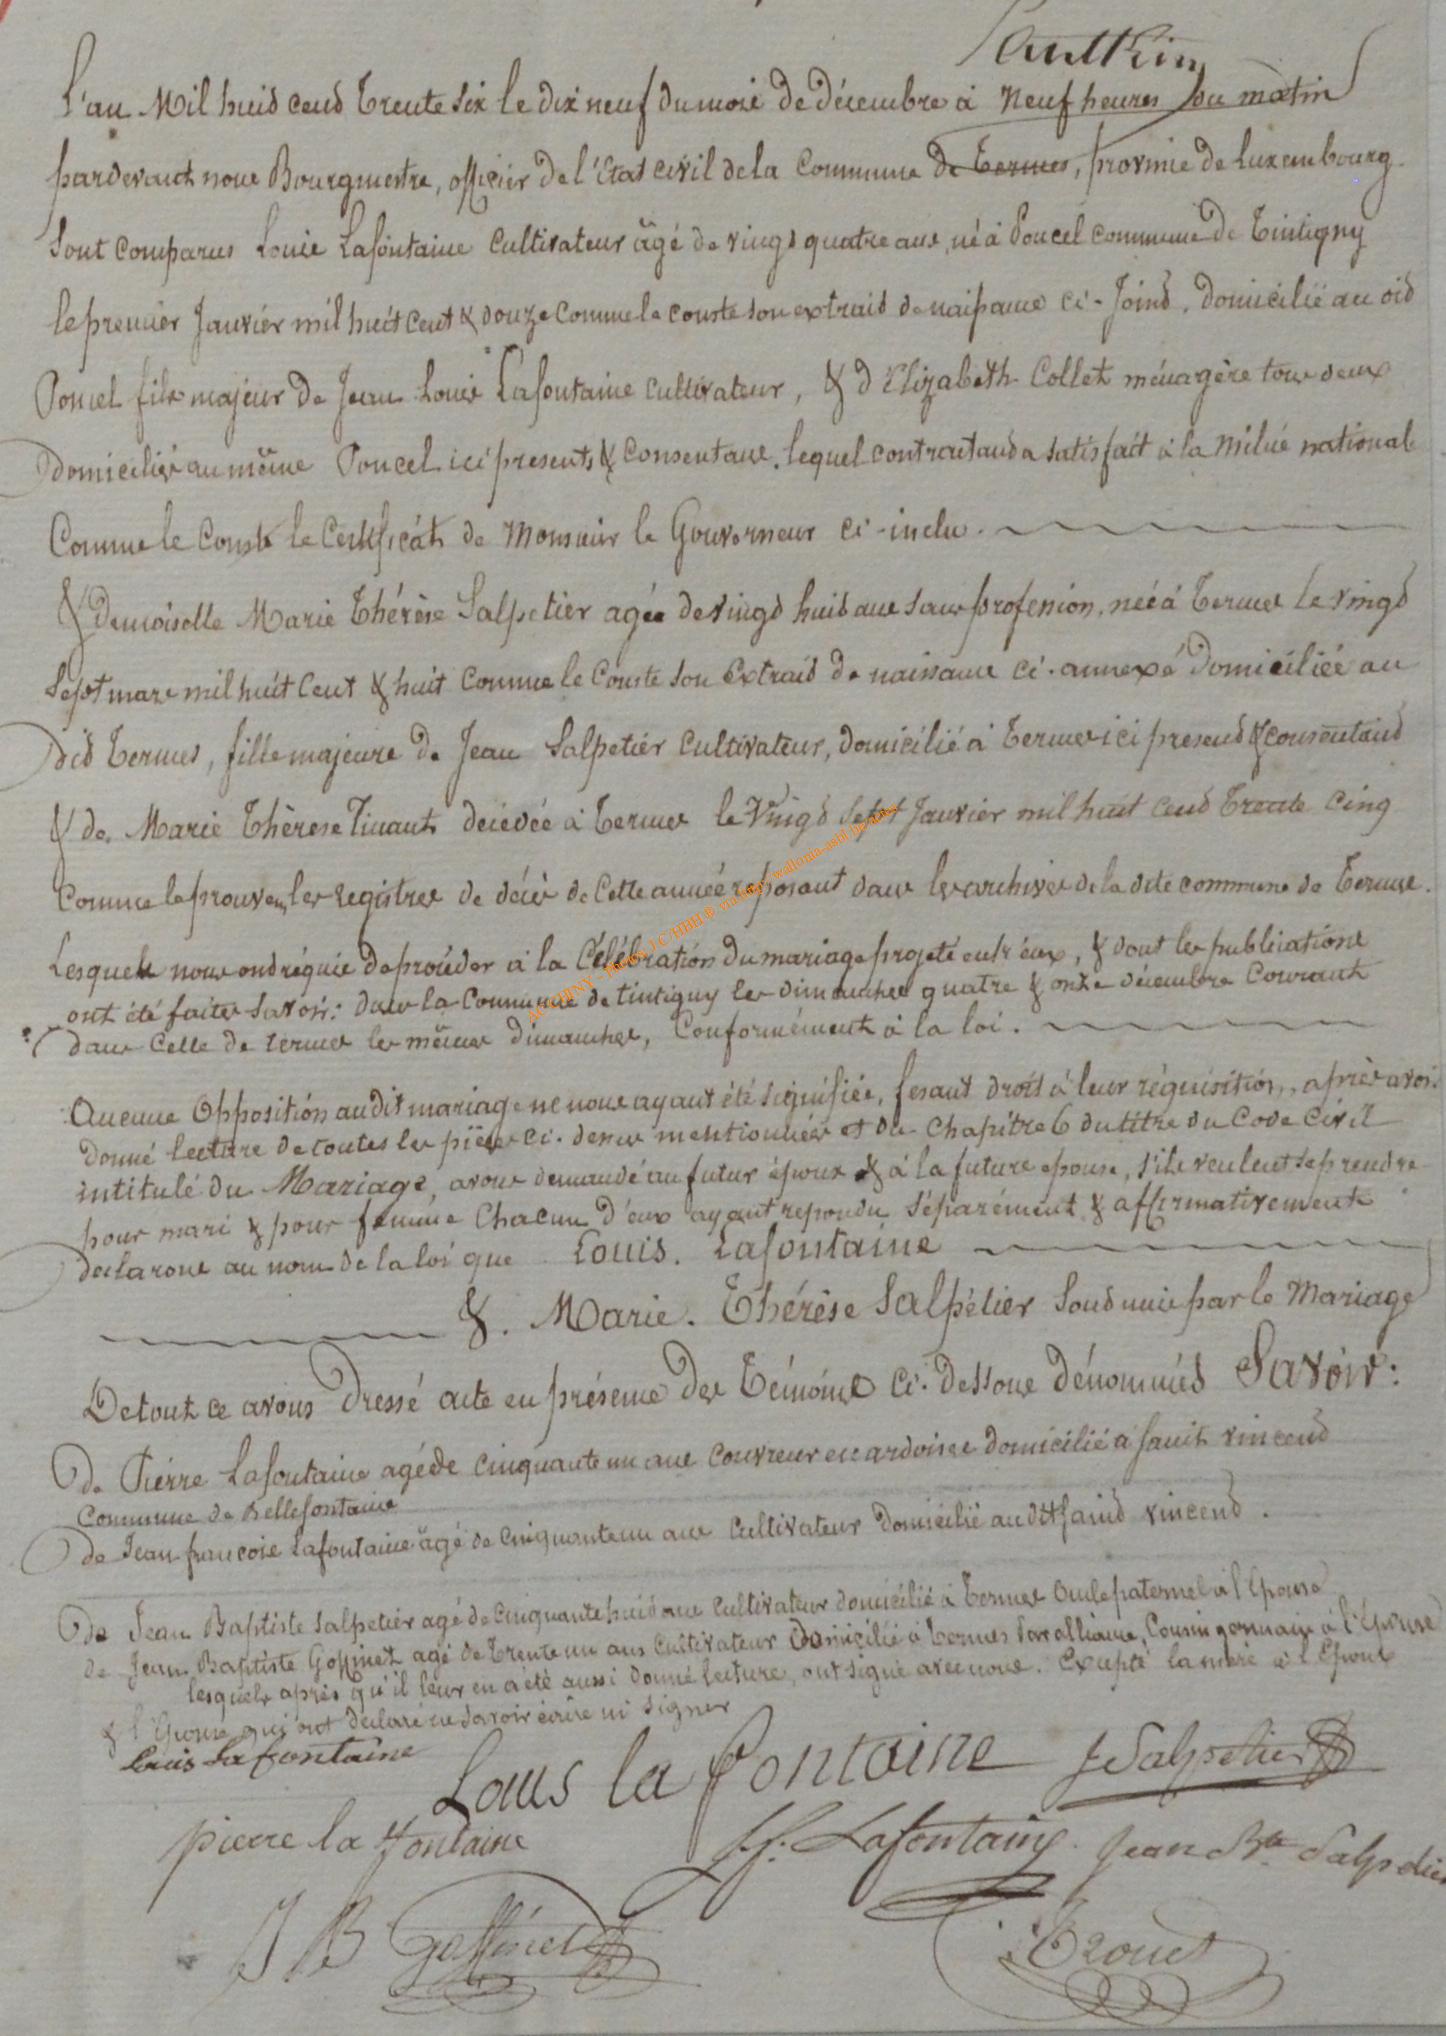 L'an Mil huid cend Trente six le dix neuf du mois de décembre à neuf heures du matin
pardevant nous Bourgmestre, officier de l'état civil de la Commune de Termes, province de Luxembourg.
Sont comparus Louis Lafontaine Cultivateur âgé de vingd quatre ans, né à Poncel commune de Tintigny
le premier Janvier mil huit cent & douze comme le conste son extraid de naissance ci-Joind. domicilié au did
Poncel fils majeur de Jean Louis Lafontaine cultivateur, & d'Elizabeth Collet ménagère tous deux
domiciliés au même Poncel ici presents & consentans. lequel contractand a satisfait à la Milice national
Comme le Conste le Certificat de Monsieur le Gouverneur ci-inclu.
& demoiselle Marie Thérèse Salpetier agée de vingd huid ans sans profession, née à Termes le vingd
Sept mars mil huit cent & huit comme le Conste son Extraid de naissance ci-annexé Domiciliée au
did Termes, fille majeure de Jean Salpetier Cultivateur, domicilié à Termes ici presend & consentand
& de Marie Thèrese Tinant décédée à Termes le Vingd Sept Janvier mil huit cend Trente cinq
Comme le prouvent les registres de décès de Cette année reposant dans les archives de la dite commune de Termes.
Lesquels nous ond réquis de procéder à la Célébration du mariage projeté entr'eux, & dont les publications
ont été faites Savoir: dans la Commune de tintigny les dimanches quatre & onze décembre Courant
dans Celle de Termes les mêmes dimanches, Conformément à la loi.
Aucune Opposition audit mariage ne nous ayant été signifiée, fesant droit à leur réquisition, après avoir
donné lecture de toutes les pièces ci-dessus mentionnées et du Chapitre 6 du titre du Code Civil
intitulé du Mariage, avons demandé au futur époux & à la future epouse, s'ils veulent se prendre
pour mari & pour femme Chacun d'eux ayant repondu séparément & affirmativement
declarons au nom de la loi que Louis. Lafontaine
&. Marie. Thérèse Salpétier Sond unis par le Mariage
De tout ce avons Dressé acte en présence des Témoins ci-dessous dénommés Savoir:
de Piérre Lafontaine agé de cinquante un ans Couvreur en ardoises domicilié à saint vincend
Commune de Bellefontaine
de Jean françois Lafontaine âgé de cinquante un ans Cultivateur Domicilié au dit saind vincend.
de Jean Baptiste Salpetier agé de cinquante huid ans Cultivateur domicilié à Termes oncle paternel à l'Epouse
de Jean Baptiste Goffinet agé de Trente un ans Cultivateur Domicilié à Termes par alliance, Cousin germain à l'Epouse
lesquels après qu'il leur en a été aussi donné lecture, ont signé avec nous. Excepté la mère à l'Epoux
& l'Epouse qui ont declaré ne savoir écrire ni signer
Louis Lafontaine
Louis la fontaine J Salpetier
pierre la fontaine J f. Lafontaine Jean Bte Salpetier
J B Goffinet
ACCHINY - Photos J.C HBH ® via http:wallonia-asbl.be